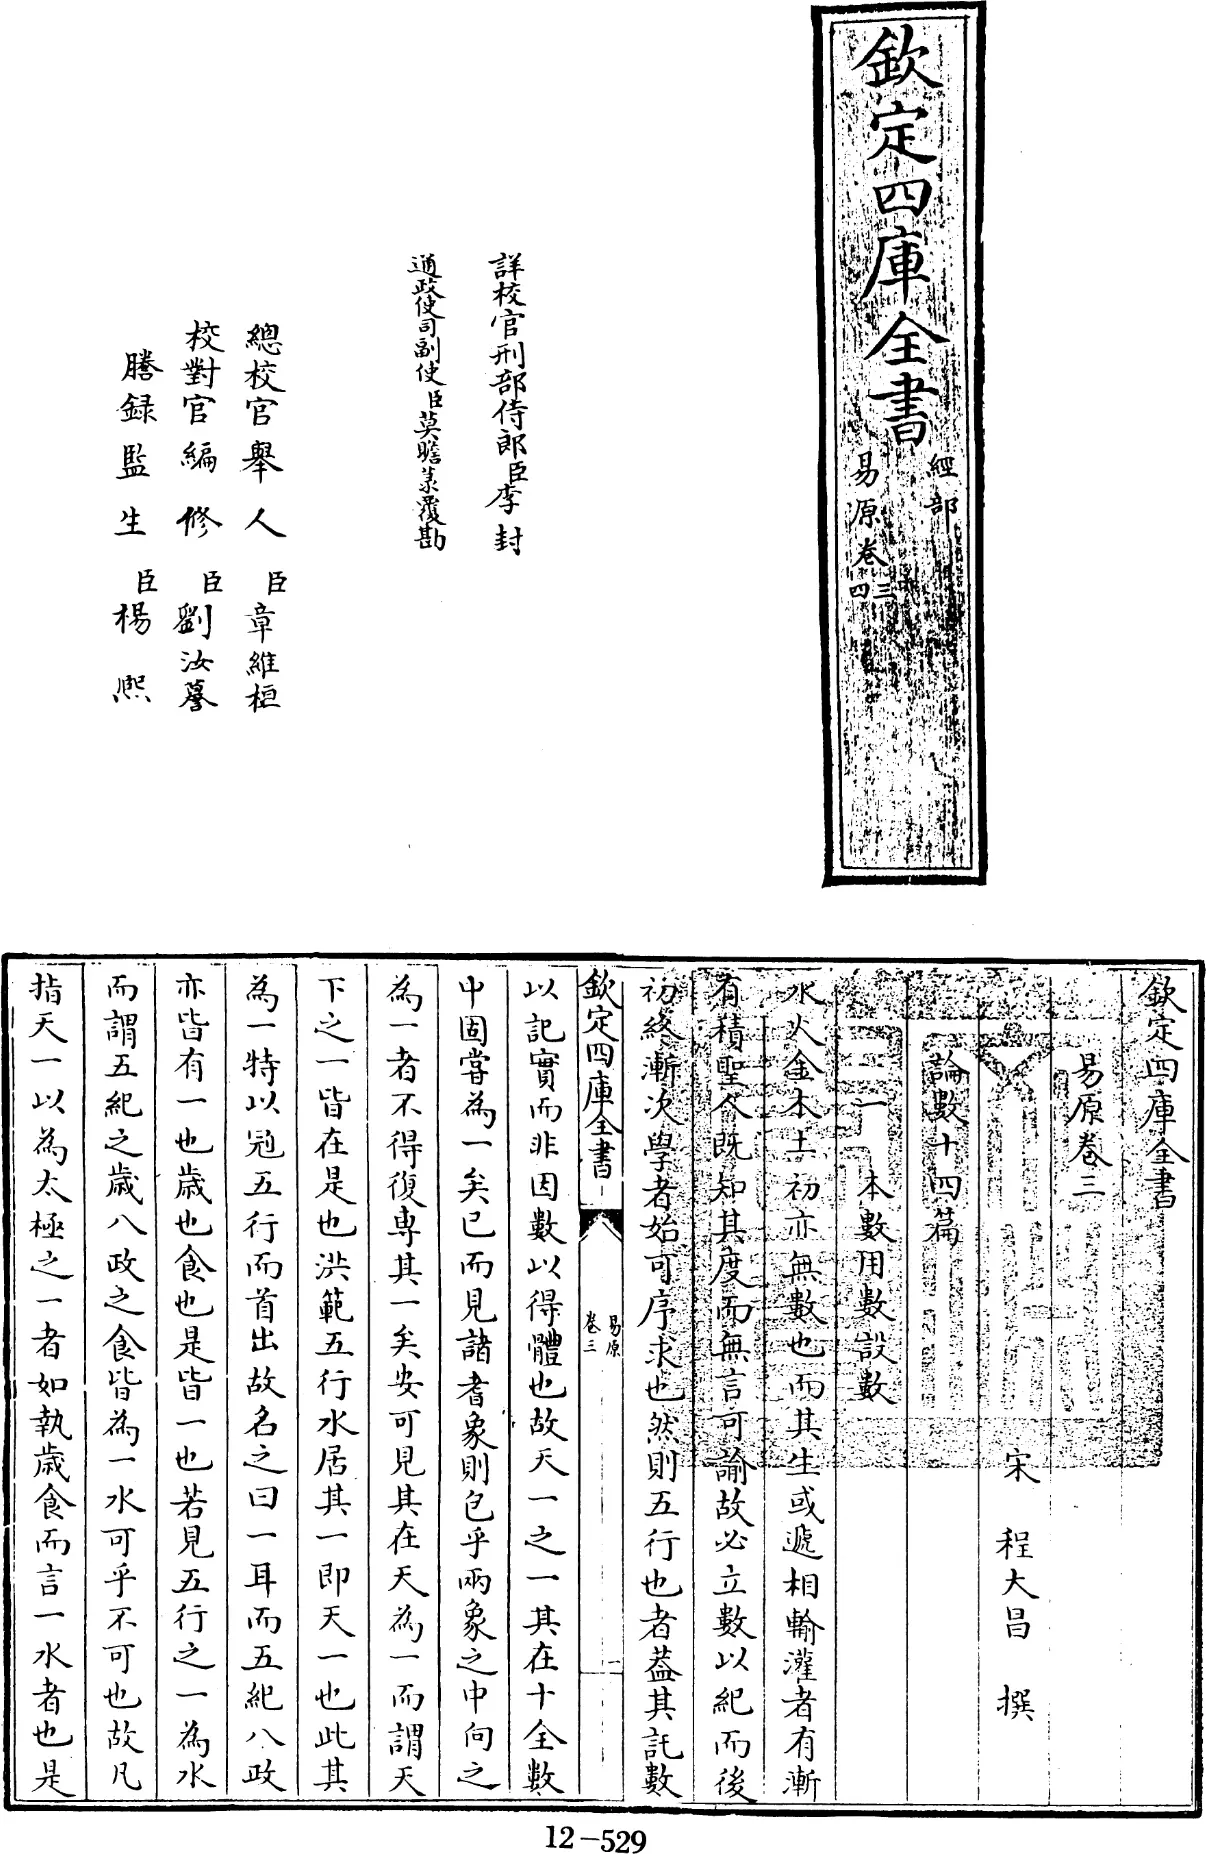 欽定四庫全書
經部
易原卷三
四
詳校官刑部侍郎臣李封
通政使司副使臣莫瞻菉覆勘
總校官舉人臣章維桓
校對官編修臣劉汝謩
謄録監生臣楊熙
欽定四庫全書
易原卷三
宋 程大昌 撰
論數十四篇
一 本數用數設數
水火金木土初亦無數也而其生或遞相輸灌者有漸
有積聖人既知其度而無言可諭故必立數以紀而後
初終漸次學者始可序求也然則五行也者葢其託數
欽定四庫全書
易原
卷三
一
以記實而非因數以得體也故天一之一其在十全數
中固嘗為一矣已而見諸耆象則包乎兩象之中向之
為一者不得復専其一矣安可見其在天為一而謂天
下之一皆在是也洪範五行水居其一即天一也此其
為一特以冠五行而首出故名之曰一耳而五紀八政
亦皆有一也歳也食也是皆一也若見五行之一為水
而謂五紀之歳八政之食皆為一水可乎不可也故凡
指天一以為太極之一者如執歳食而言一水者也是
12-529